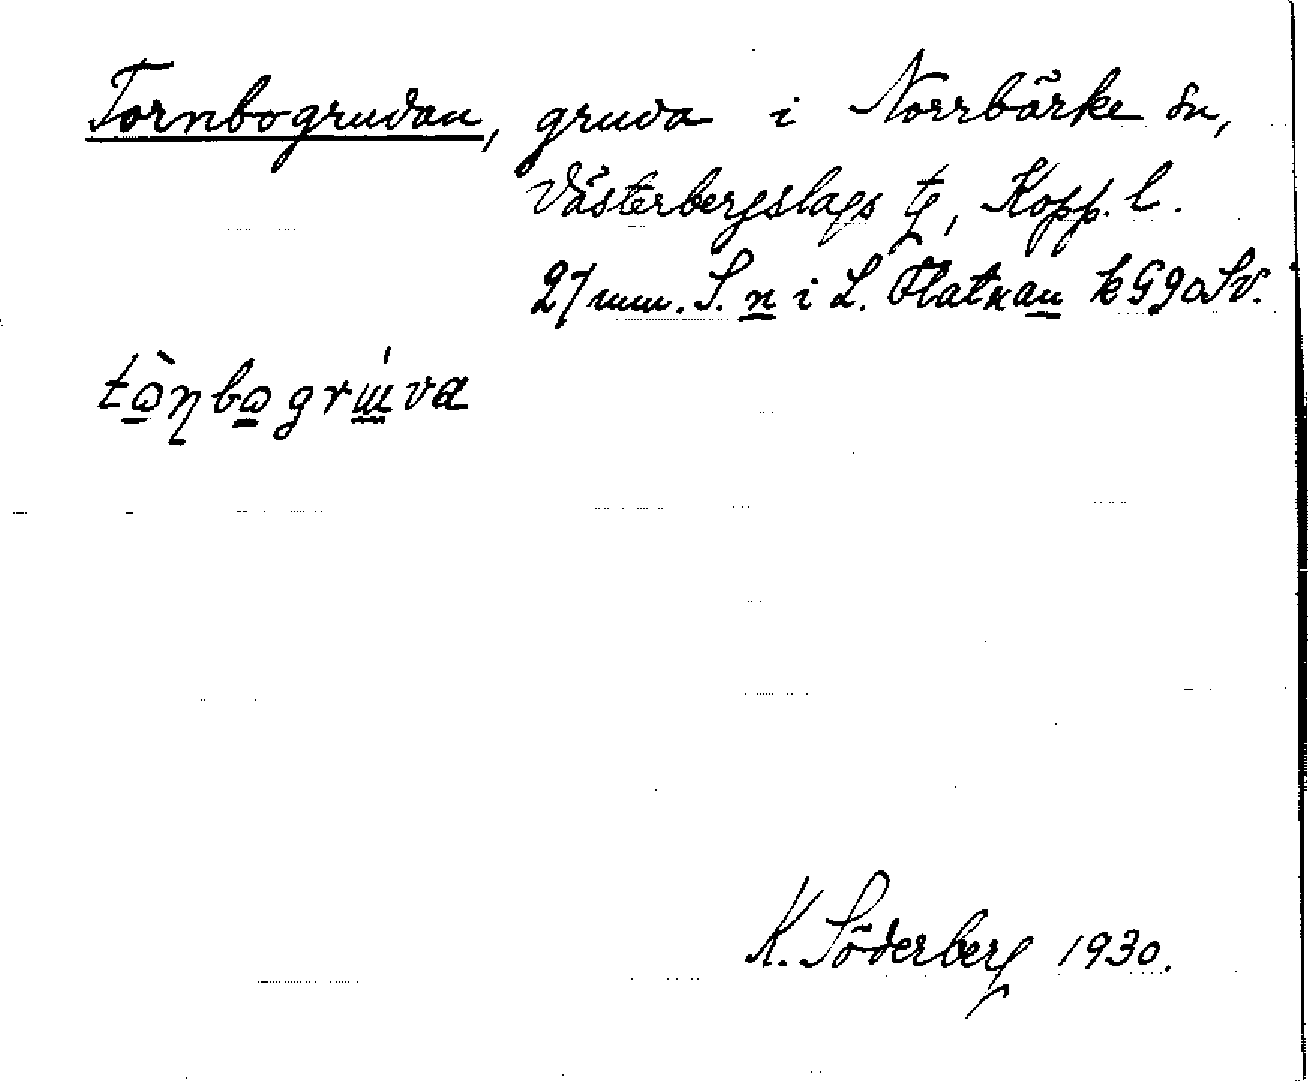 Tornbogruvan, gruva i Norrbärke sn,
Västerbergslags tg, Kopp. l.
27 mm. S. n i L. Flatnan k 990 SV.
tònbogrúva
K. Söderberg 1930.